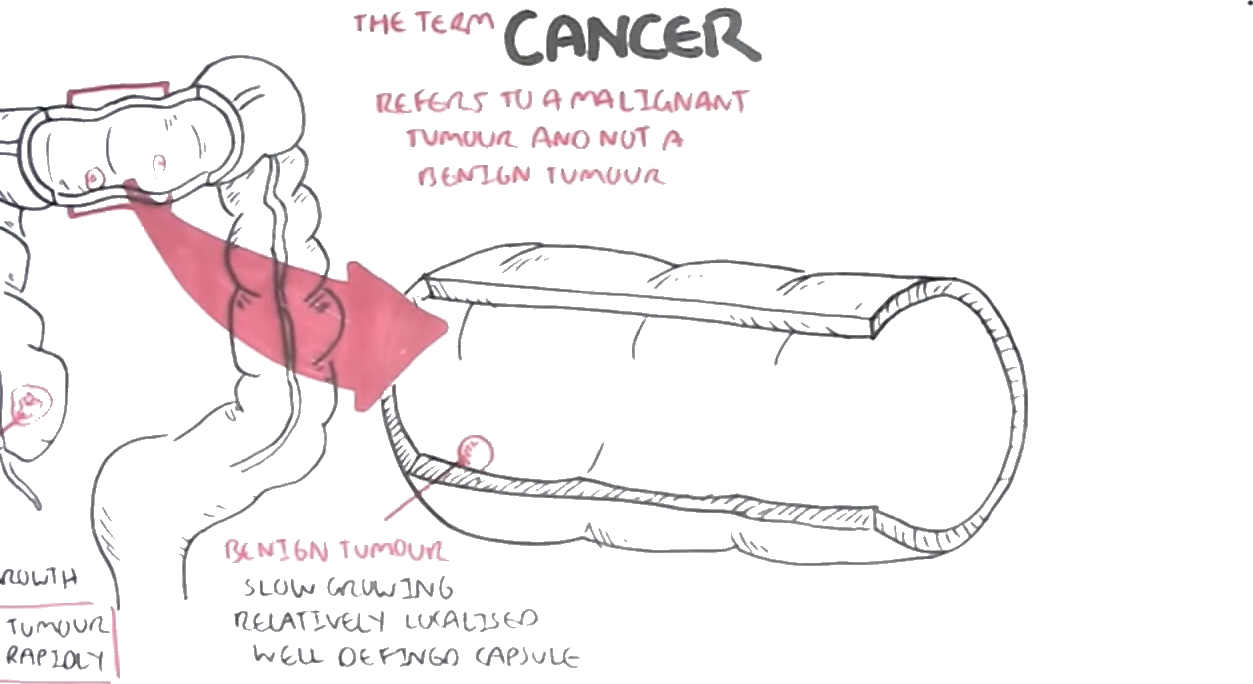 THE TERM CANCER
REFERS TO A MALIGNANT
TUMOUR AND NOT A
BENIGN TUMOUR
BENIGN TUMOUR
SLOW GROWING
RELATIVELY LOCALISED
WELL DEFINED CAPSULE
ROWTH
TUMOUR
RAPIDLY